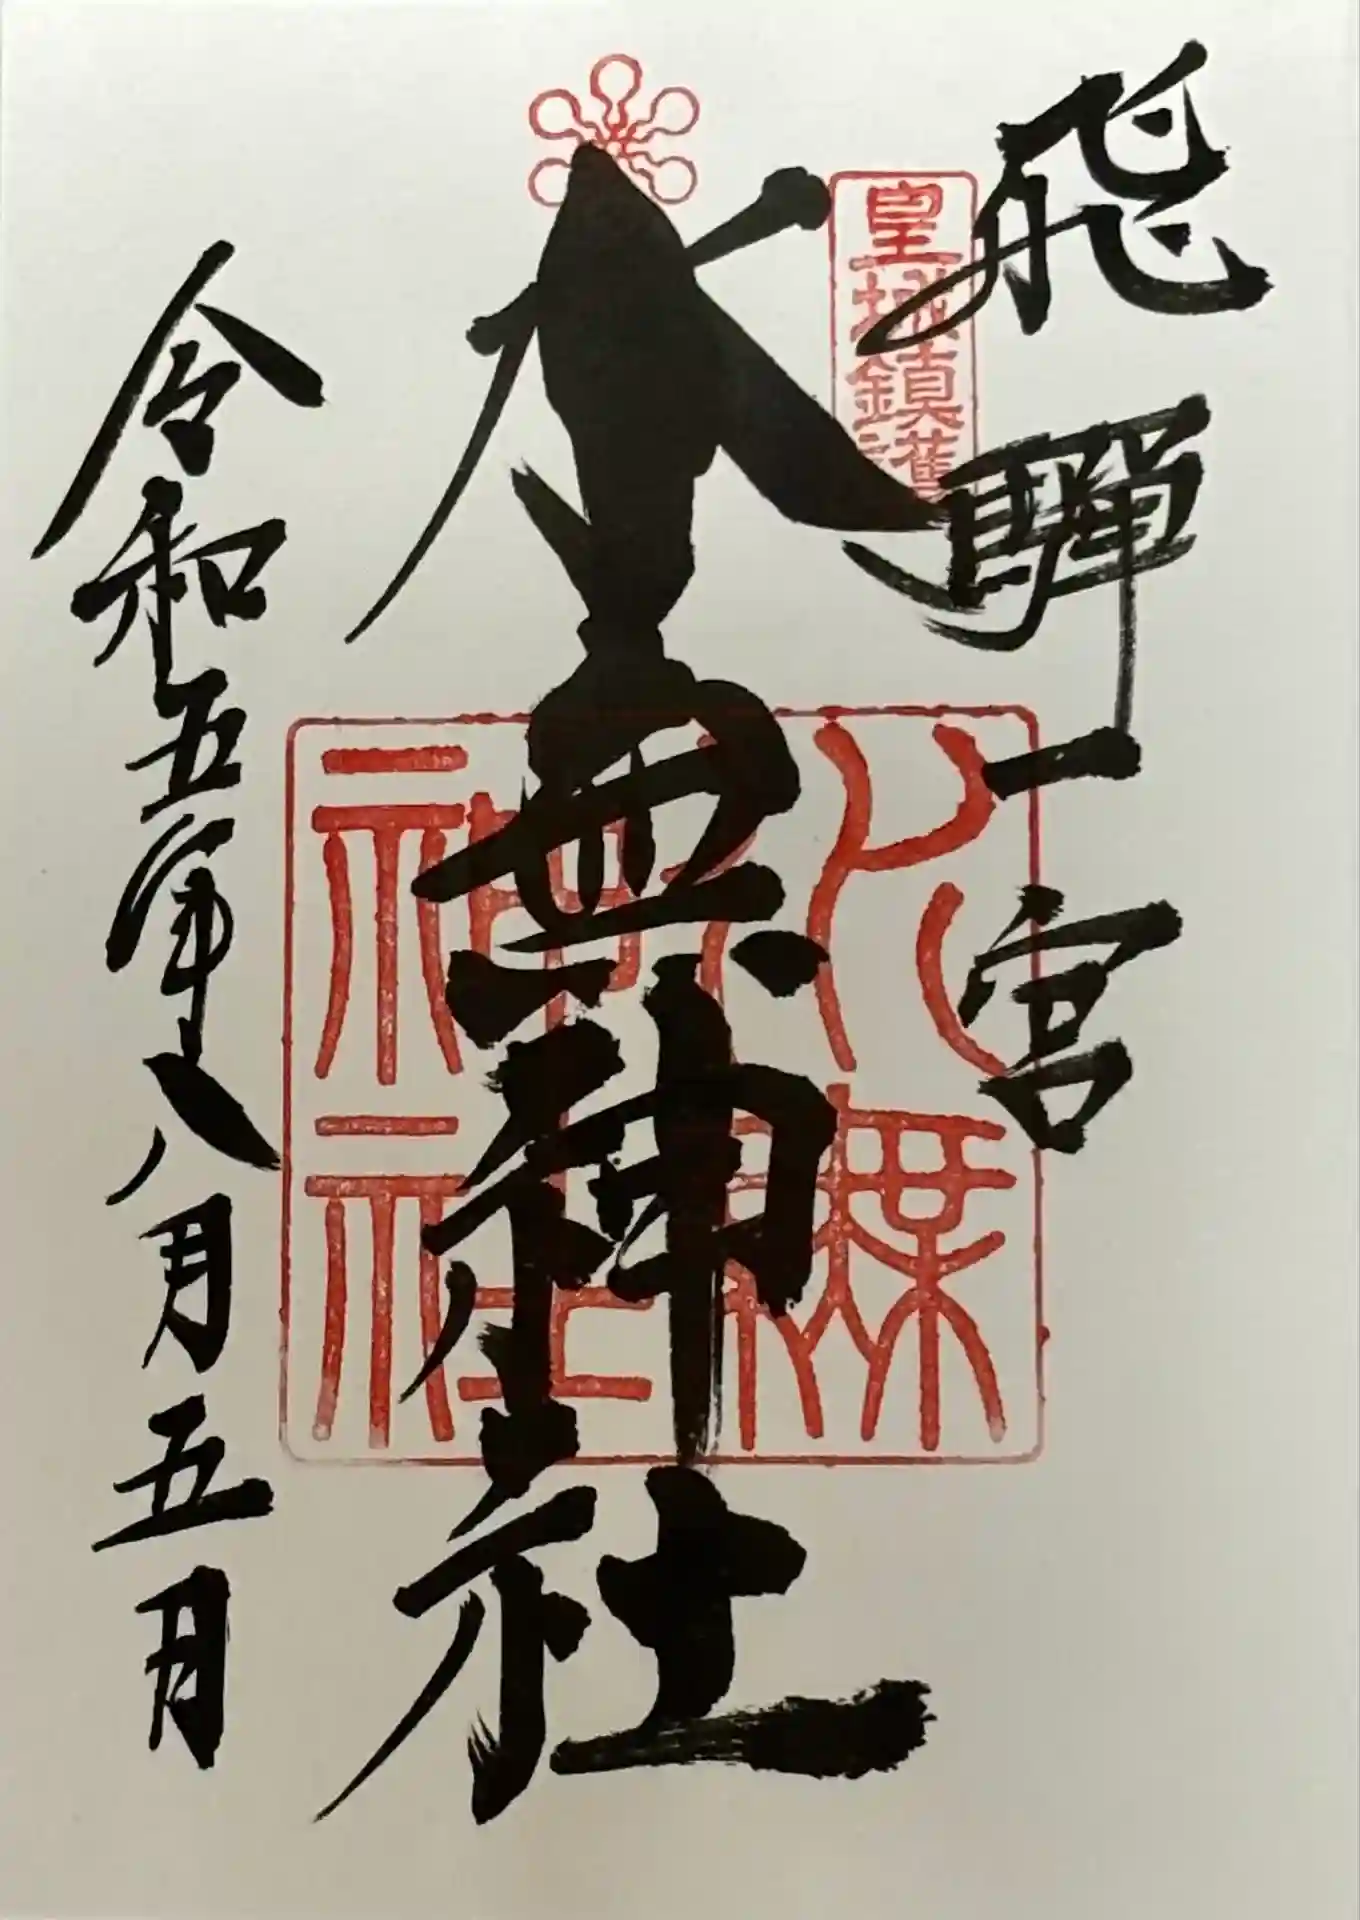 飛驒一宮
皇城鎮護
水無神社
水無神社
令和五年八月五日